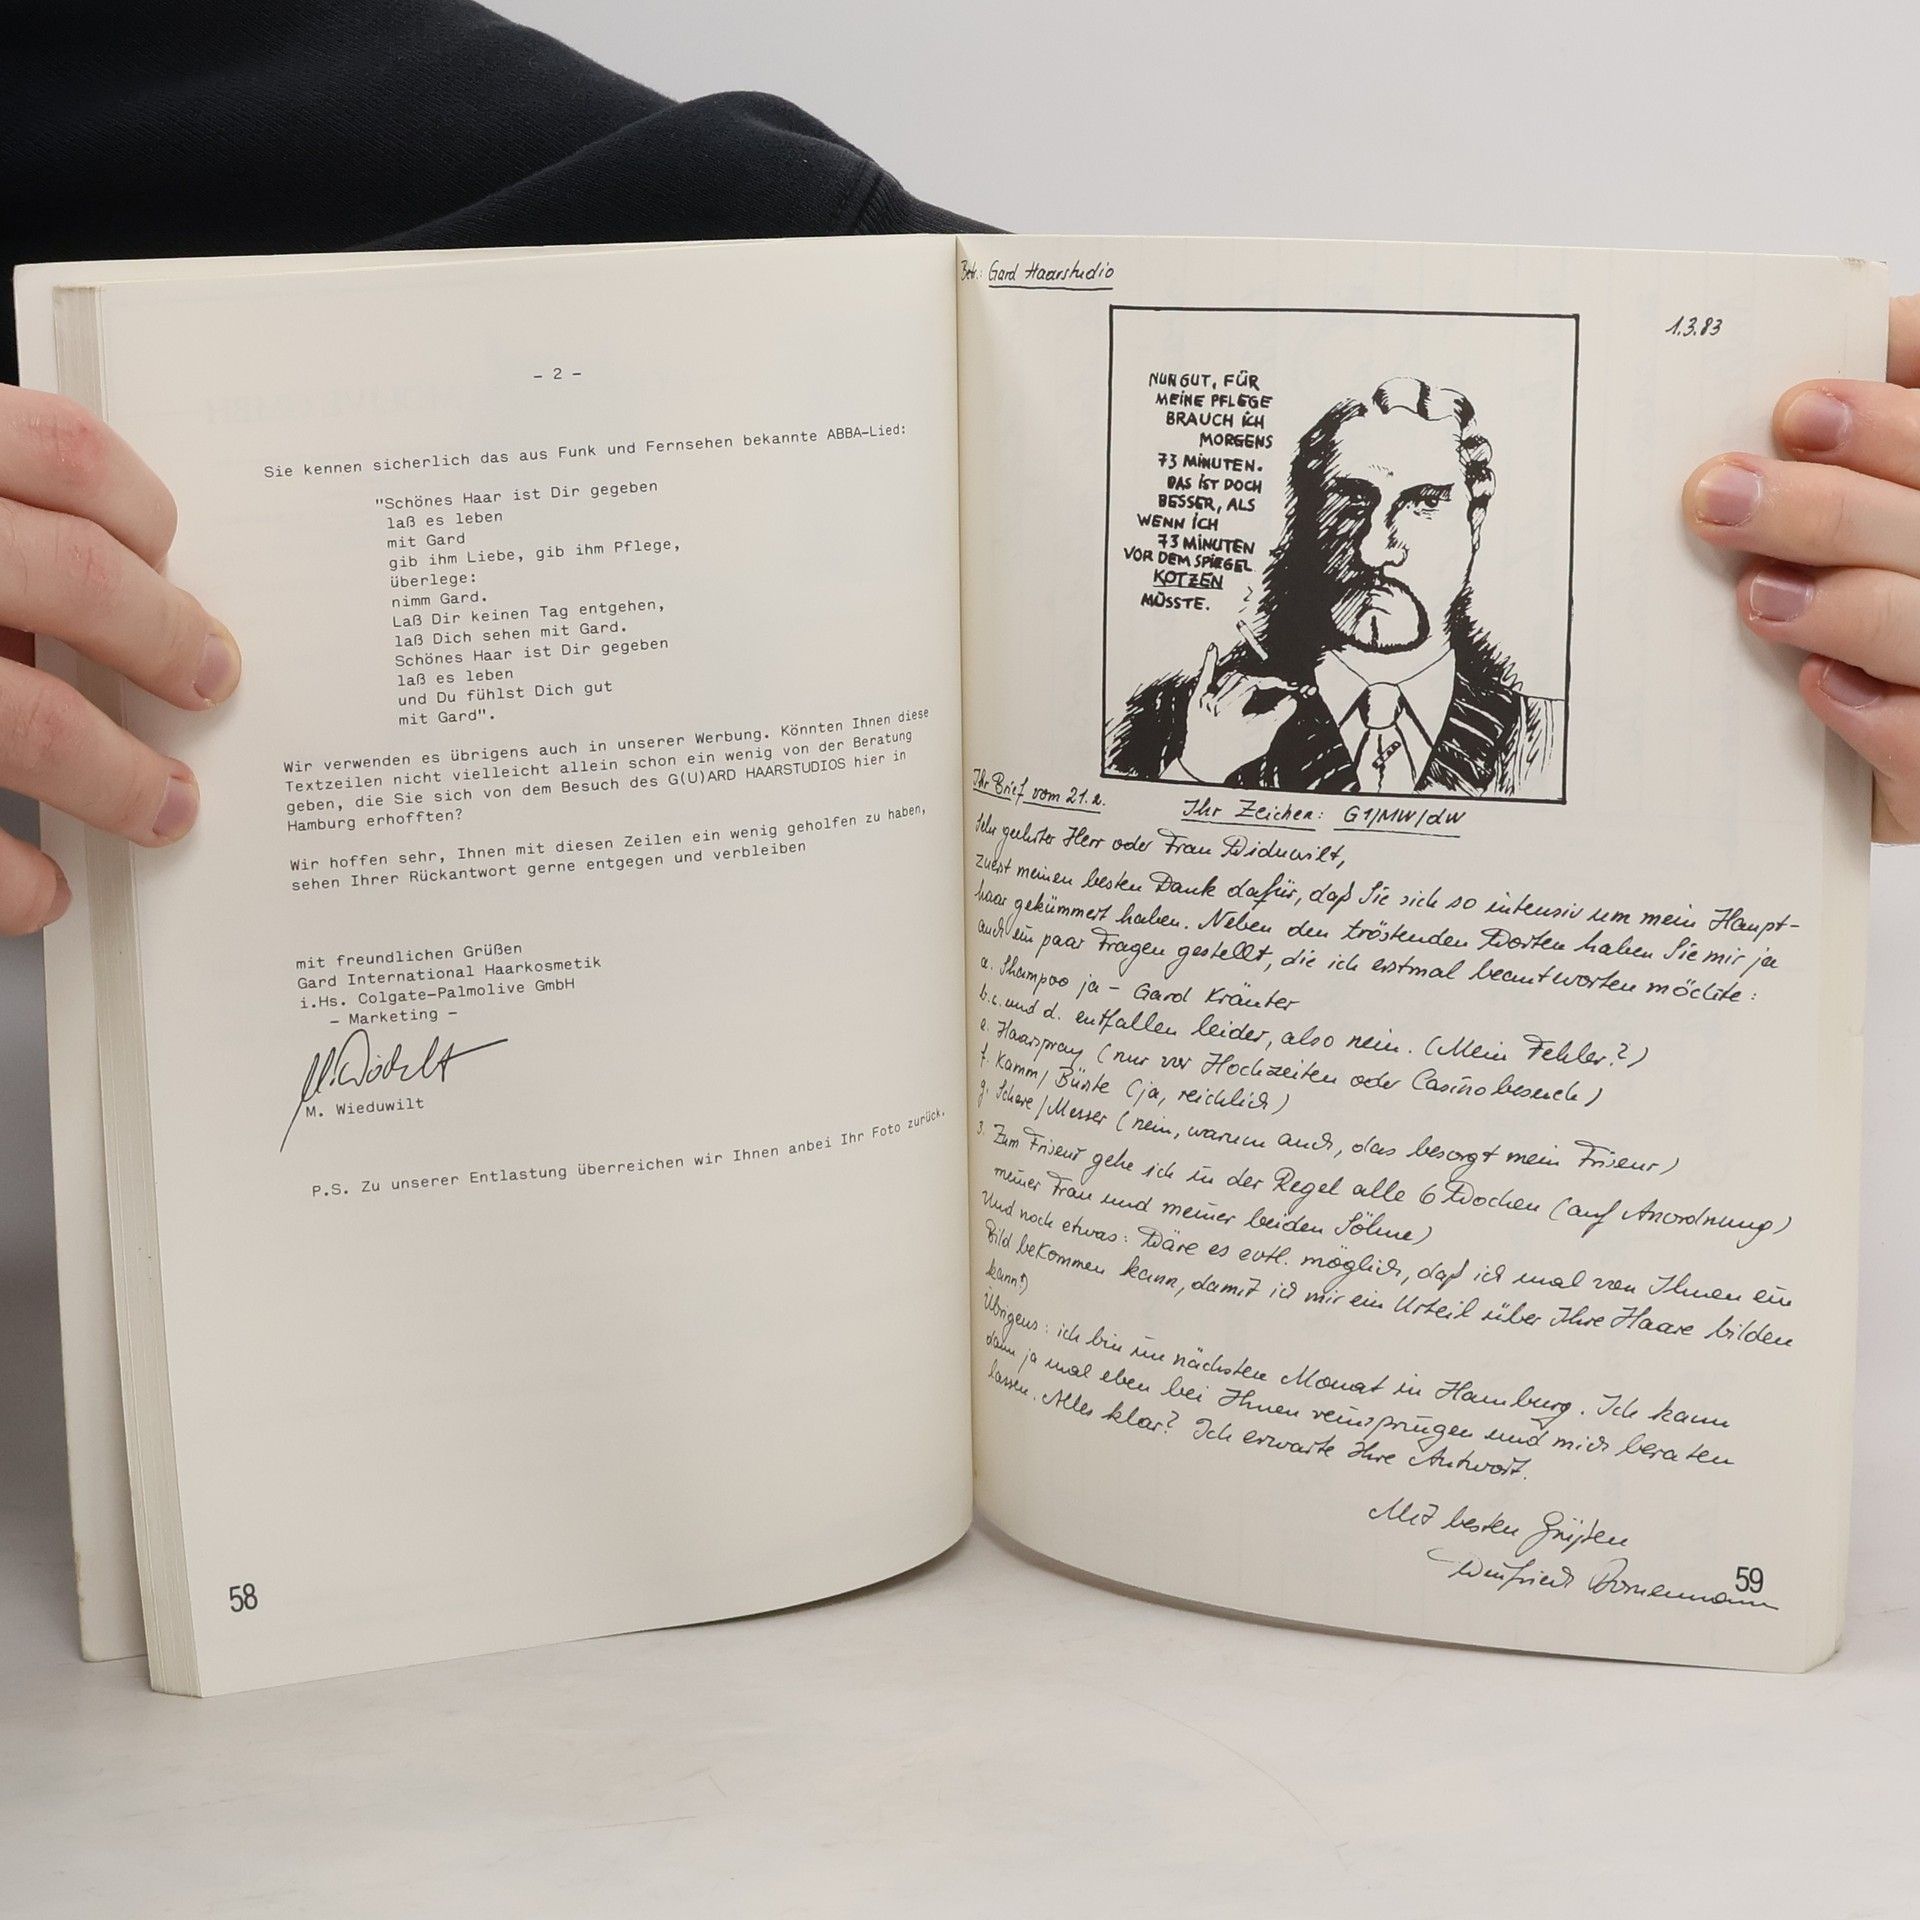 - 2 -
Sie kennen sicherlich das aus Funk und Fernsehen bekannte ABBA-Lied:
"Schönes Haar ist Dir gegeben
laß es leben
mit Gard
gib ihm Liebe, gib ihm Pflege,
überlege:
nimm Gard.
Laß Dir keinen Tag entgehen,
laß Dich sehen mit Gard.
Schönes Haar ist Dir gegeben
laß es leben
und Du fühlst Dich gut
mit Gard".
Wir verwenden es übrigens auch in unserer Werbung. Könnten Ihnen diese
Textzeilen nicht vielleicht allein schon ein wenig von der Beratung
geben, die Sie sich von dem Besuch des G(U)ARD HAARSTUDIOS hier in
Hamburg erhofften?
Wir hoffen sehr, Ihnen mit diesen Zeilen ein wenig geholfen zu haben,
sehen Ihrer Rückantwort gerne entgegen und verbleiben
mit freundlichen Grüßen
Gard International Haarkosmetik
i.Hs. Colgate-Palmolive GmbH
- Marketing -
M. Wieduwilt
P.S. Zu unserer Entlastung überreichen wir Ihnen anbei Ihr Foto zurück.
58
Betr.: Gard Haarstudio
1.3.83
NUN GUT, FÜR
MEINE PFLEGE
BRAUCH ICH
MORGENS
73 MINUTEN.
DAS IST DOCH
BESSER, ALS
WENN ICH
73 MINUTEN
VOR DEM SPIEGEL
KOTZEN
MÜSSTE.
Ihr Brief vom 21.2.
Ihr Zeichen: G1/MW/dW
Sehr geehrter Herr oder Frau Widuwilt,
zuerst meinen besten Dank dafür, daß Sie sich so intensiv um mein Haupt-
haar gekümmert haben. Neben den tröstenden Worten haben Sie mir ja
auch ein paar Fragen gestellt, die ich erstmal beantworten möchte:
a. Shampoo ja - Gard Kräuter
b.c. und d. entfallen leider, also nein. (Mein Fehler?)
e. Haarspray (nur vor Hochzeiten oder Casinobesuch)
f. Kamm/Bürste (ja, reichlich)
g. Schere/Messer (nein, warum auch, das besorgt mein Friseur)
3. Zum Friseur gehe ich in der Regel alle 6 Wochen (auf Anordnung)
meiner Frau und meiner beiden Söhne)
Und noch etwas: Wäre es evtl. möglich, daß ich mal von Ihnen ein
Bild bekommen kann, damit ich mir ein Urteil über Ihre Haare bilden
kann?)
Übrigens: ich bin im nächsten Monat in Hamburg. Ich kann
dann ja mal eben bei Ihnen reinspringen und mich beraten
lassen. Alles klar? Ich erwarte Ihre Antwort.
Mit besten Grüßen
Winfried Bornemann
59